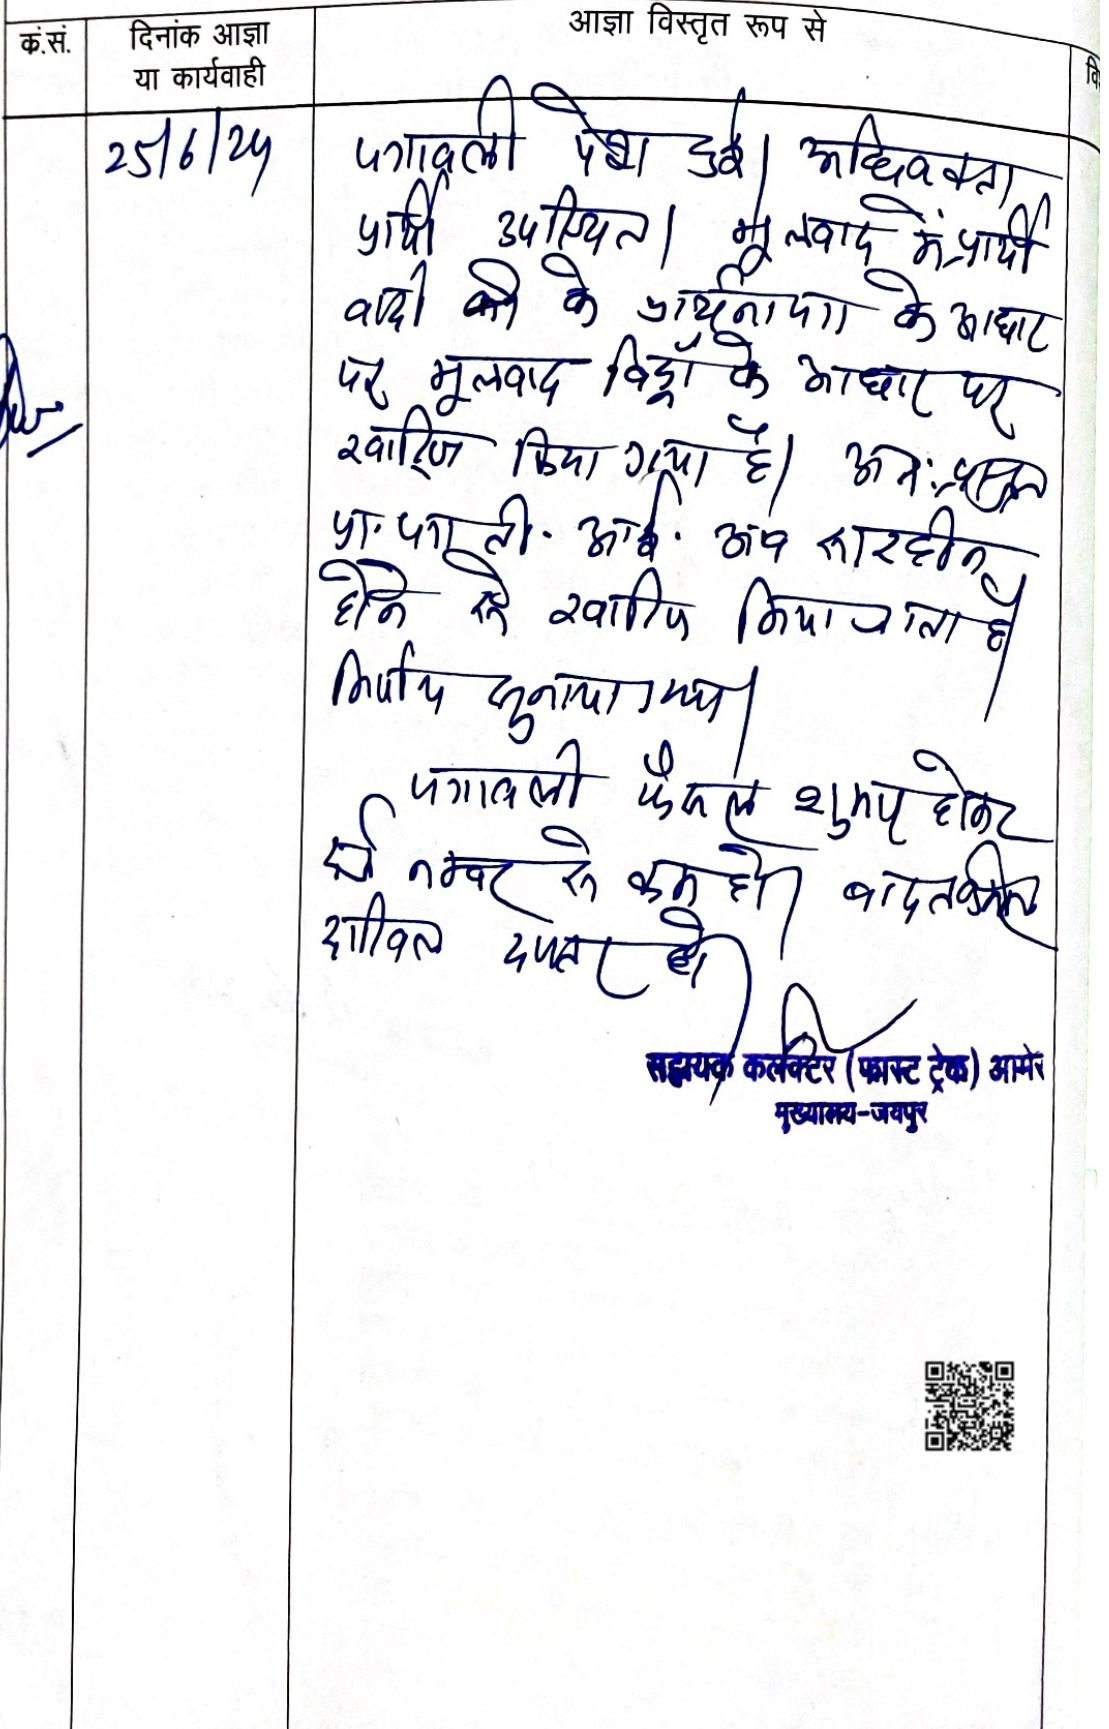 क्र.सं.
दिनांक आज्ञा
या कार्यवाही
आज्ञा विस्तृत रूप से
वि
25/6/24
पत्रावली पेश हुई। अधिवक्ता
प्रार्थी उपस्थित। मूलवाद में प्रार्थी
वादी के प्रार्थनापत्र के आधार
पर मूलवाद विड्रॉ के आधार पर
खारिज किया गया है। अतः प्रस्तुत
प्रा. पत्र टी. आई. अब सारहीन
होने से खारिज किया जाता है।
निर्णय सुनाया गया।
पत्रावली फैसल शुमार होकर
नम्बर से कम हो। बाद तकमील
दाखिल दफ्तर हो।
सहायक कलक्टर (फास्ट ट्रेक) आमेर
मुख्यालय-जयपुर